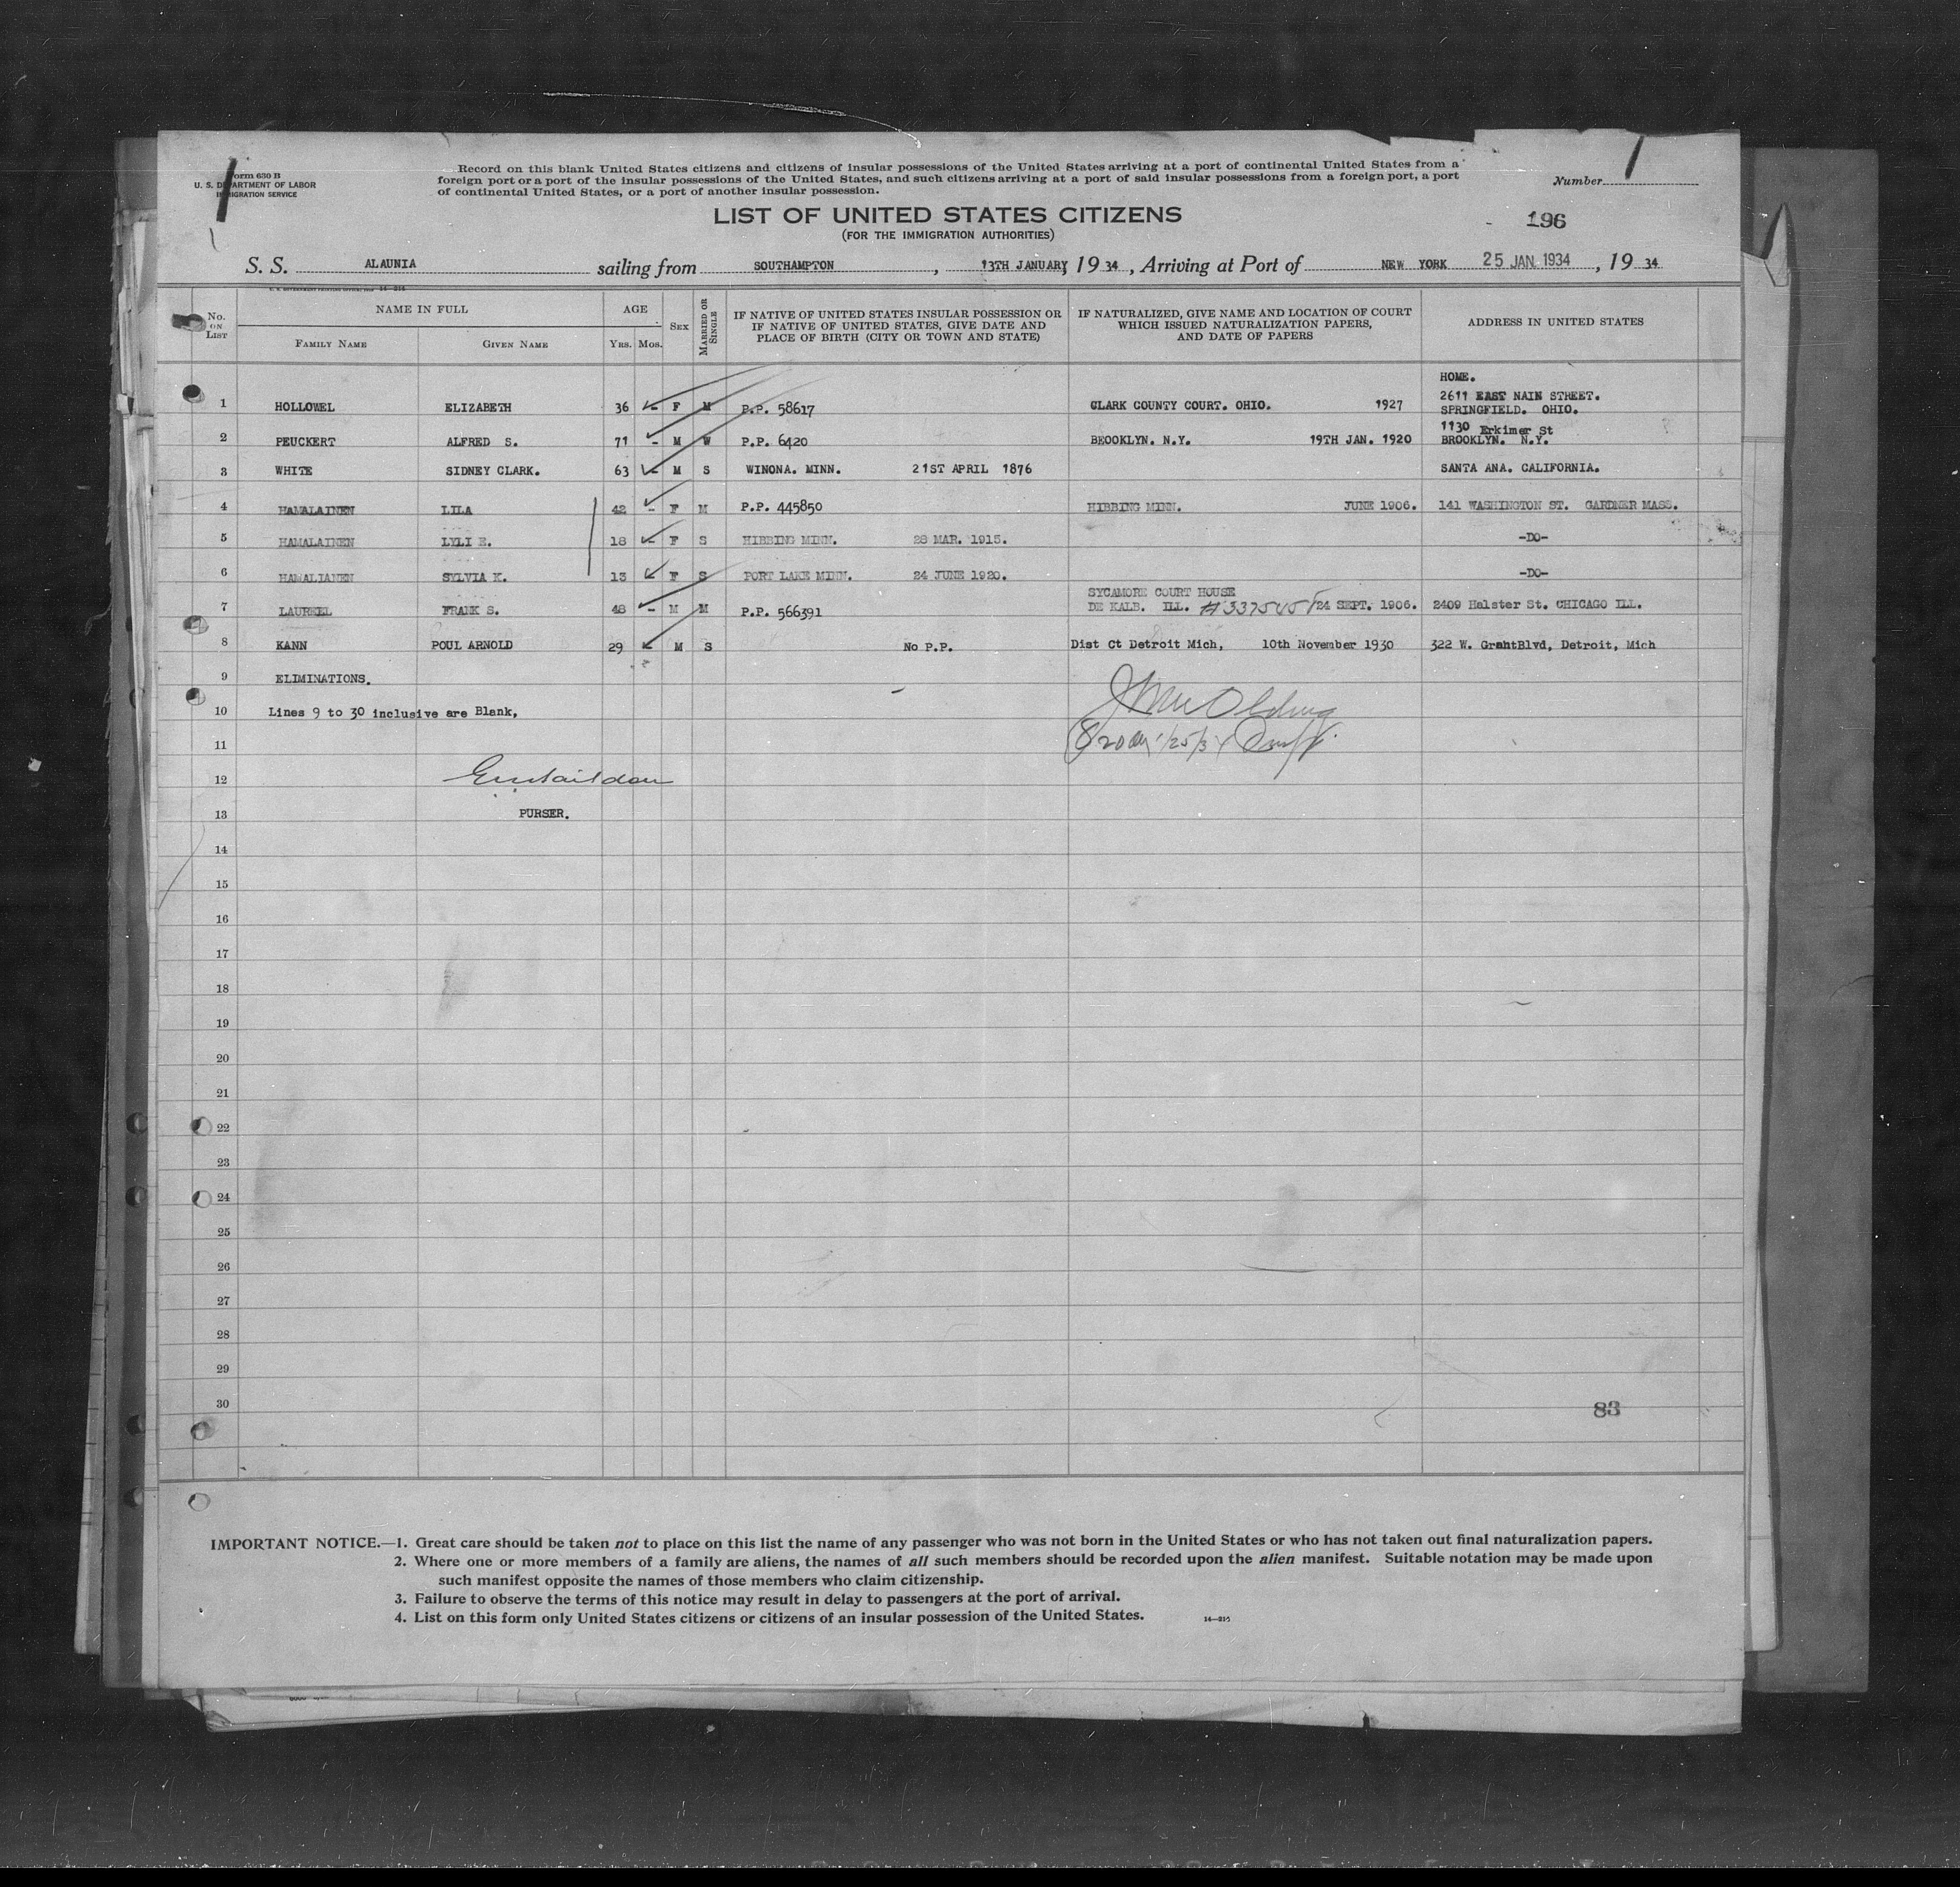 Form 630 B
U. S. DEPARTMENT OF LABOR
IMMIGRATION SERVICE
Record on this blank United States citizens and citizens of insular possessions of the United States arriving at a port of continental United States from a
foreign port or a port of the insular possessions of the United States, and such citizens arriving at a port of said insular possessions from a foreign port, a port
of continental United States, or a port of another insular possession.
Number 1
LIST OF UNITED STATES CITIZENS
(FOR THE IMMIGRATION AUTHORITIES)
196
S. S. ALAUNIA sailing from SOUTHAMPTON, 13TH JANUARY 19 34, Arriving at Port of NEW YORK 25 JAN 1934, 19 34
No. ON LIST NAME IN FULL AGE SEX MARRIED OR SINGLE IF NATIVE OF UNITED STATES INSULAR POSSESSION OR IF NATIVE OF UNITED STATES, GIVE DATE AND PLACE OF BIRTH (CITY OR TOWN AND STATE) IF NATURALIZED, GIVE NAME AND LOCATION OF COURT WHICH ISSUED NATURALIZATION PAPERS, AND DATE OF PAPERS ADDRESS IN UNITED STATES
FAMILY NAME GIVEN NAME YRS. MOS.
HOME.
2611 EAST NAIN STREET.
1 HOLLOWEL ELIZABETH 36 - F M P.P. 58617 CLARK COUNTY COURT. OHIO. 1927 SPRINGFIELD. OHIO.
1130 Erkimer St
2 PEUCKERT ALFRED S. 71 - M W P.P. 6420 BEOOKLYN. N.Y. 19TH JAN. 1920 BROOKLYN. N.Y.
3 WHITE SIDNEY CLARK. 63 - M S WINONA. MINN. 21ST APRIL 1876 SANTA ANA. CALIFORNIA.
4 HAMALAINEN LILA 42 - F M P.P. 445850 HIBBING MINN. JUNE 1906. 141 WASHINGTON ST. GARDNER MASS.
5 HAMALAINEN LYLI E. 18 - F S HIBBING MINN. 28 MAR. 1915. -DO-
6 HAMALIANEN SYLVIA K. 13 F S PORT LAKE MINN. 24 JUNE 1920. -DO-
SYCAMORE COURT HOUSE
7 LAUREEL FRANK S. 48 - M M P.P. 566391 DE KALB. ILL. 24 SEPT. 1906. 2409 Halster St. CHICAGO ILL.
8 KANN POUL ARNOLD 29 M S No P.P. Dist Ct Detroit Mich, 10th November 1930 322 W. GrantBlvd, Detroit, Mich
9 ELIMINATIONS.
10 Lines 9 to 30 inclusive are Blank,
11 1/25/34
12
13 PURSER.
14
15
16
17
18
19
20
21
22
23
24
25
26
27
28
29
30
83
IMPORTANT NOTICE.—1. Great care should be taken not to place on this list the name of any passenger who was not born in the United States or who has not taken out final naturalization papers.
2. Where one or more members of a family are aliens, the names of all such members should be recorded upon the alien manifest. Suitable notation may be made upon
such manifest opposite the names of those members who claim citizenship.
3. Failure to observe the terms of this notice may result in delay to passengers at the port of arrival.
4. List on this form only United States citizens or citizens of an insular possession of the United States.